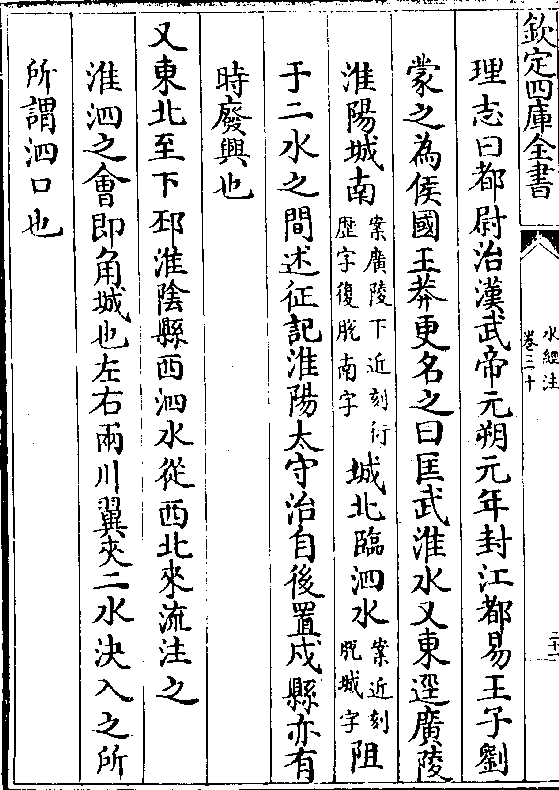 欽定四庫全書
水經注
卷三十
二十二
理志曰都尉治漢武帝元朔元年封江都易王子劉
蒙之為侯國王莽更名之曰匡武淮水又東逕廣陵
淮陽城南案廣陵下近刻衍歴字復脫南字城北臨泗水案近刻脫城字阻
于二水之間述征記淮陽太守治自後置戍縣亦有
時廢興也
又東北至下邳淮陰縣西泗水從西北來流注之
淮泗之會即角城也左右兩川翼夾二水決入之所
所謂泗口也